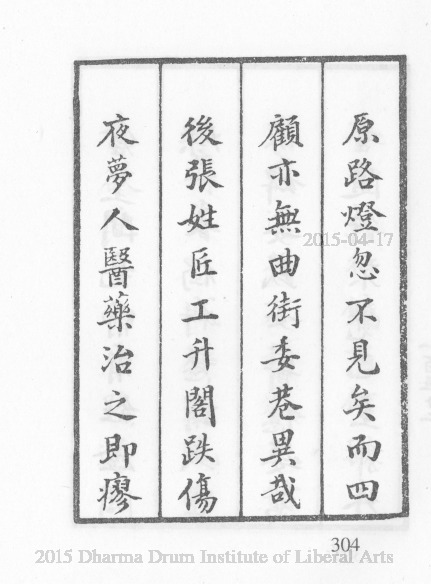 原路燈忽不見矣而四
顧亦無曲街委巷異哉
後張姓匠工升閣跌傷
夜夢人醫藥治之即瘳
2015-04-17
304
2015 Dharma Drum Institute of Liberal Arts